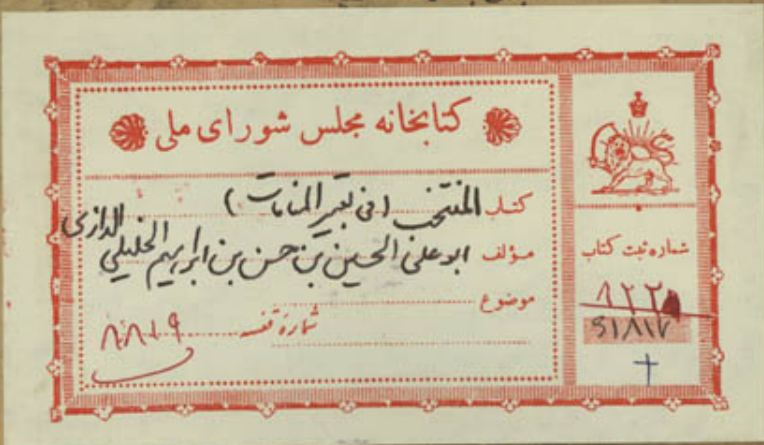 کتابخانه مجلس شورای ملی
کتاب المنتخب (فی تعبیر المنامات)
مؤلف ابوعلی الحسین بن حسن بن ابراهیم الخلیلی الداری
موضوع
شماره قفسه ۸۸۱۹
شماره ثبت کتاب